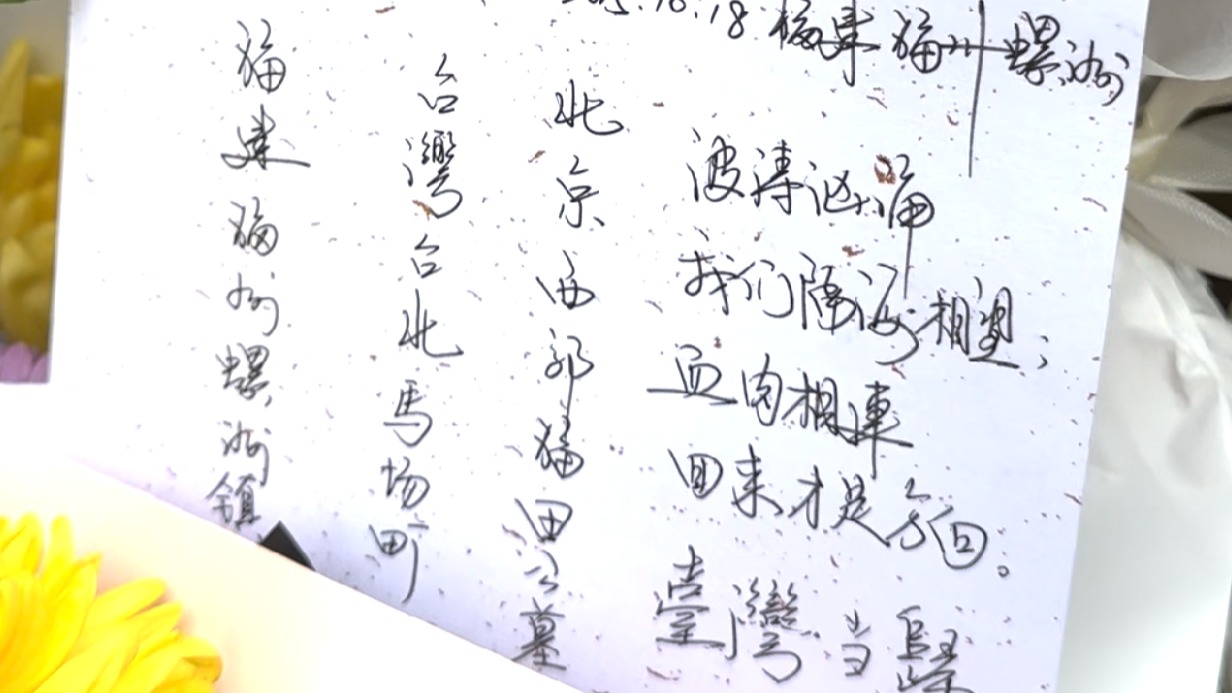 .10.18 福建 福州 螺洲
波涛汹涌
我们隔海相望;
血肉相連
回来才是方向。
臺灣当歸
北京西郊福田公墓
台灣台北馬场町
福建福州螺洲镇